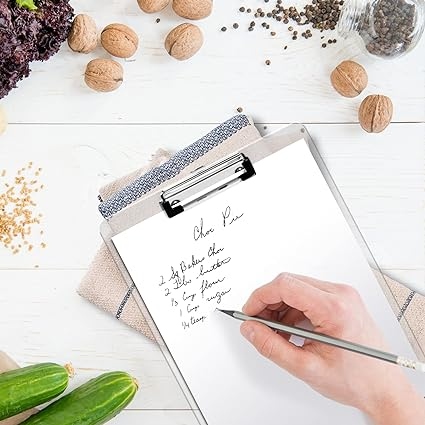 Choc Pie
2 Sq Bakers Choc
2 Tbs butter
1/3 Cup flour
1 Cup sugar
1/4 teas